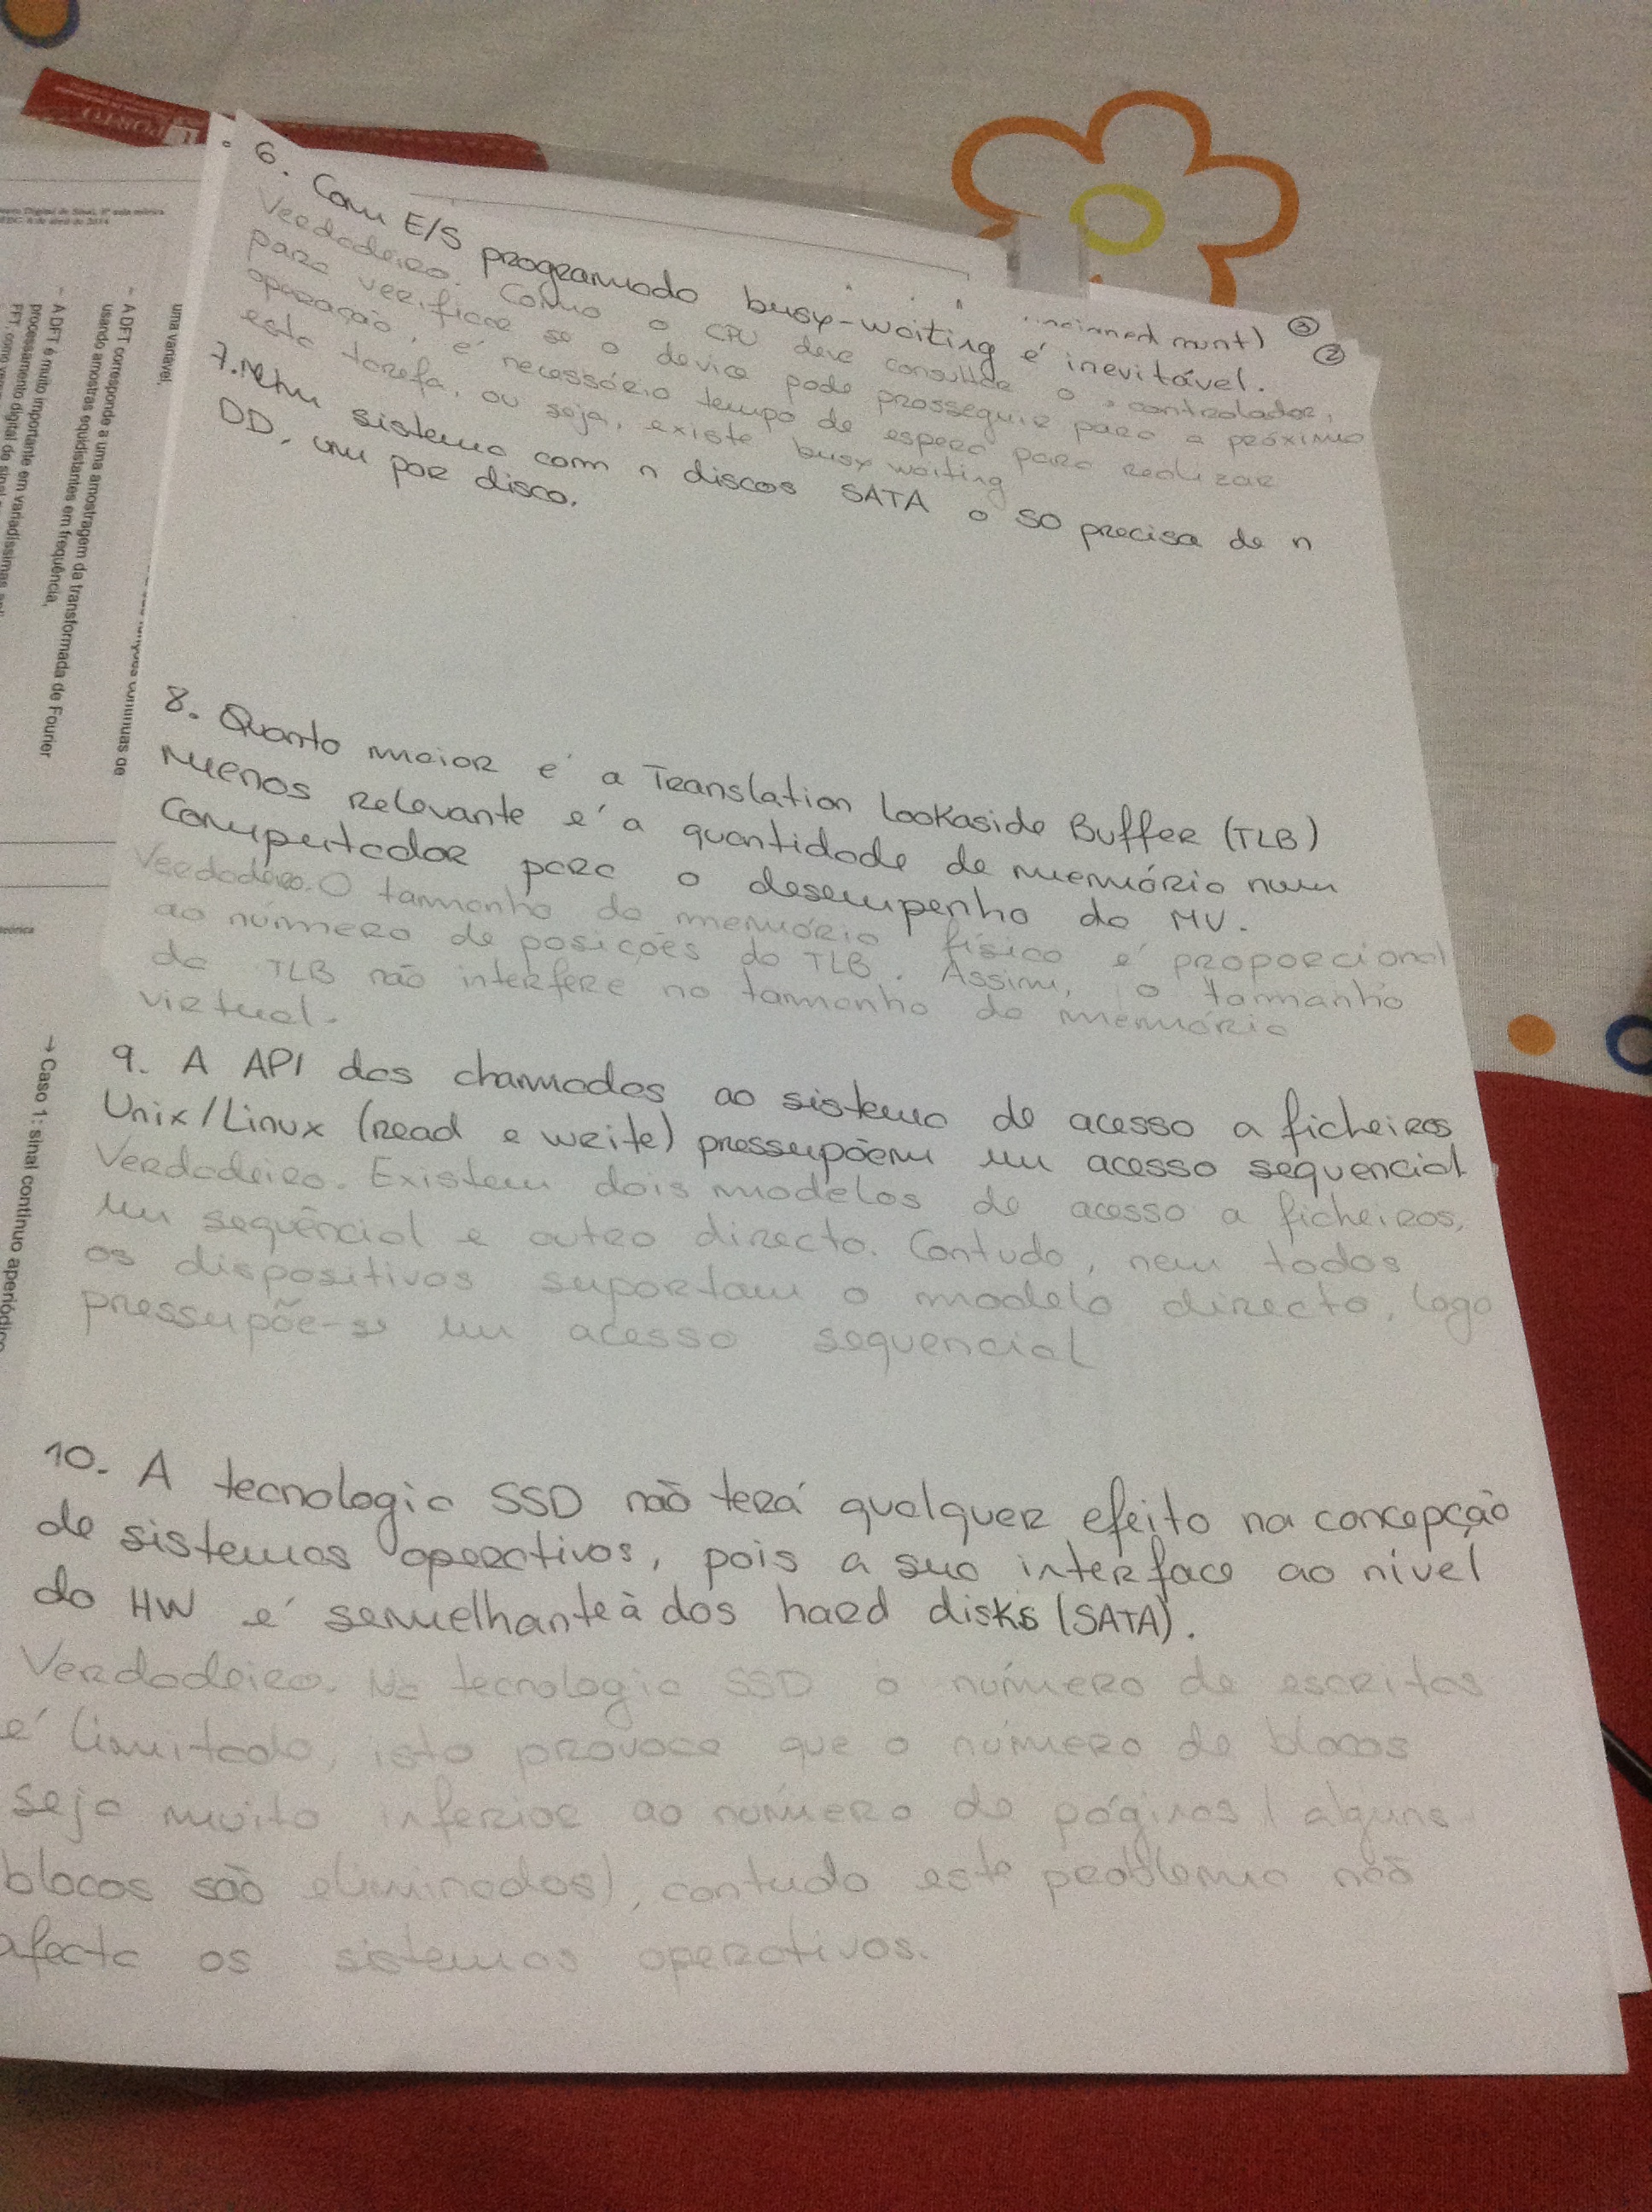 PORTO
...ncinned munt) ③
②
6. Com E/S programado busy-waiting é inevitável.
Verdadeiro. Como o CPU deve consultar o controlador,
para verificar se o device pode prosseguir para a próxima
operação, é necessário tempo de espera para realizar
esta tarefa, ou seja, existe busy waiting
7. Num sistema com n discos SATA o SO precisa de n
DD, um por disco.
8. Quanto maior é a Translation Lookaside Buffer (TLB)
menos relevante é a quantidade de memória num
computador para o desempenho da MV.
Verdadeiro. O tamanho da memória física é proporcional
ao número de posições da TLB. Assim, o tamanho
da TLB não interfere no tamanho da memória
virtual.
9. A API das chamadas ao sistema de acesso a ficheiros
Unix/Linux (read e write) pressupõem um acesso sequencial
Verdadeiro. Existem dois modelos de acesso a ficheiros,
um sequêncial e outro directo. Contudo, nem todos
os dispositivos suportam o modelo directo, logo
pressupõe-se um acesso sequencial
10. A tecnologia SSD não terá qualquer efeito na concepção
de sistemas operativos, pois a sua interface ao nível
do HW é semelhante à dos hard disks (SATA).
Verdadeiro. Na tecnologia SSD o número de escritas
é limitado, isto provoca que o número de blocos
seja muito inferior ao número de páginas (alguns
blocos são eliminados), contudo este problema não
afecta os sistemas operativos.
uma variável,
- A DFT corresponde a uma amostragem da transformada de Fourier
usando amostras equidistantes em frequência,
- A DFT é muito importante em variadíssimas
processamento digital de sinal
FFT, como
→ Caso 1: sinal contínuo aperiódico